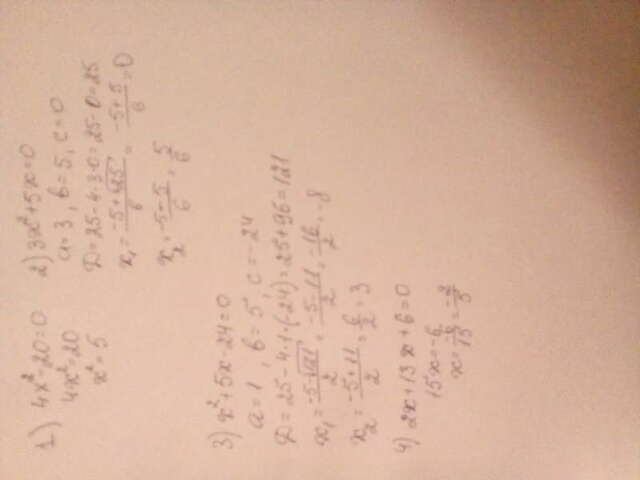 1) 4x²-20=0
4x²=20
x²=5
2) 3x²+5x=0
a=3, b=5, c=0
D=25-4·3·0=25-0=25
x₁=(-5+√25)/6=(-5+5)/6=0
x₂=(-5-5)/6=5/6
3) x²+5x-24=0
a=1, b=5, c=-24
D=25-4·1·(-24)=25+96=121
x₁=(-5-√121)/2=(-5-11)/2=-16/2=-8
x₂=(-5+11)/2=6/2=3
4) 2x+13x+6=0
15x=-6
x=-6/15=-2/5